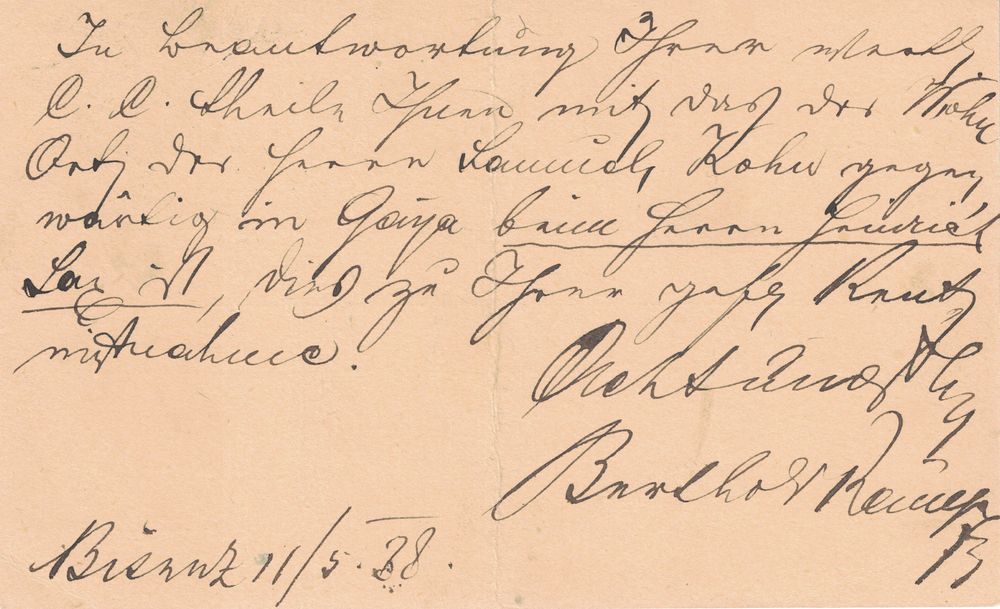 In Beantwortung Ihrer werth
C. C. theile Ihnen mit das der Wohn
Ort des Herrn Samuel Kohn gegen
wärtig in Gaya beim Herrn Heinrich
Lax ist, dies zu Ihrer gefl Kent
nistnahme.
Achtungs
Berthold
Bisenz 11/5. 88.